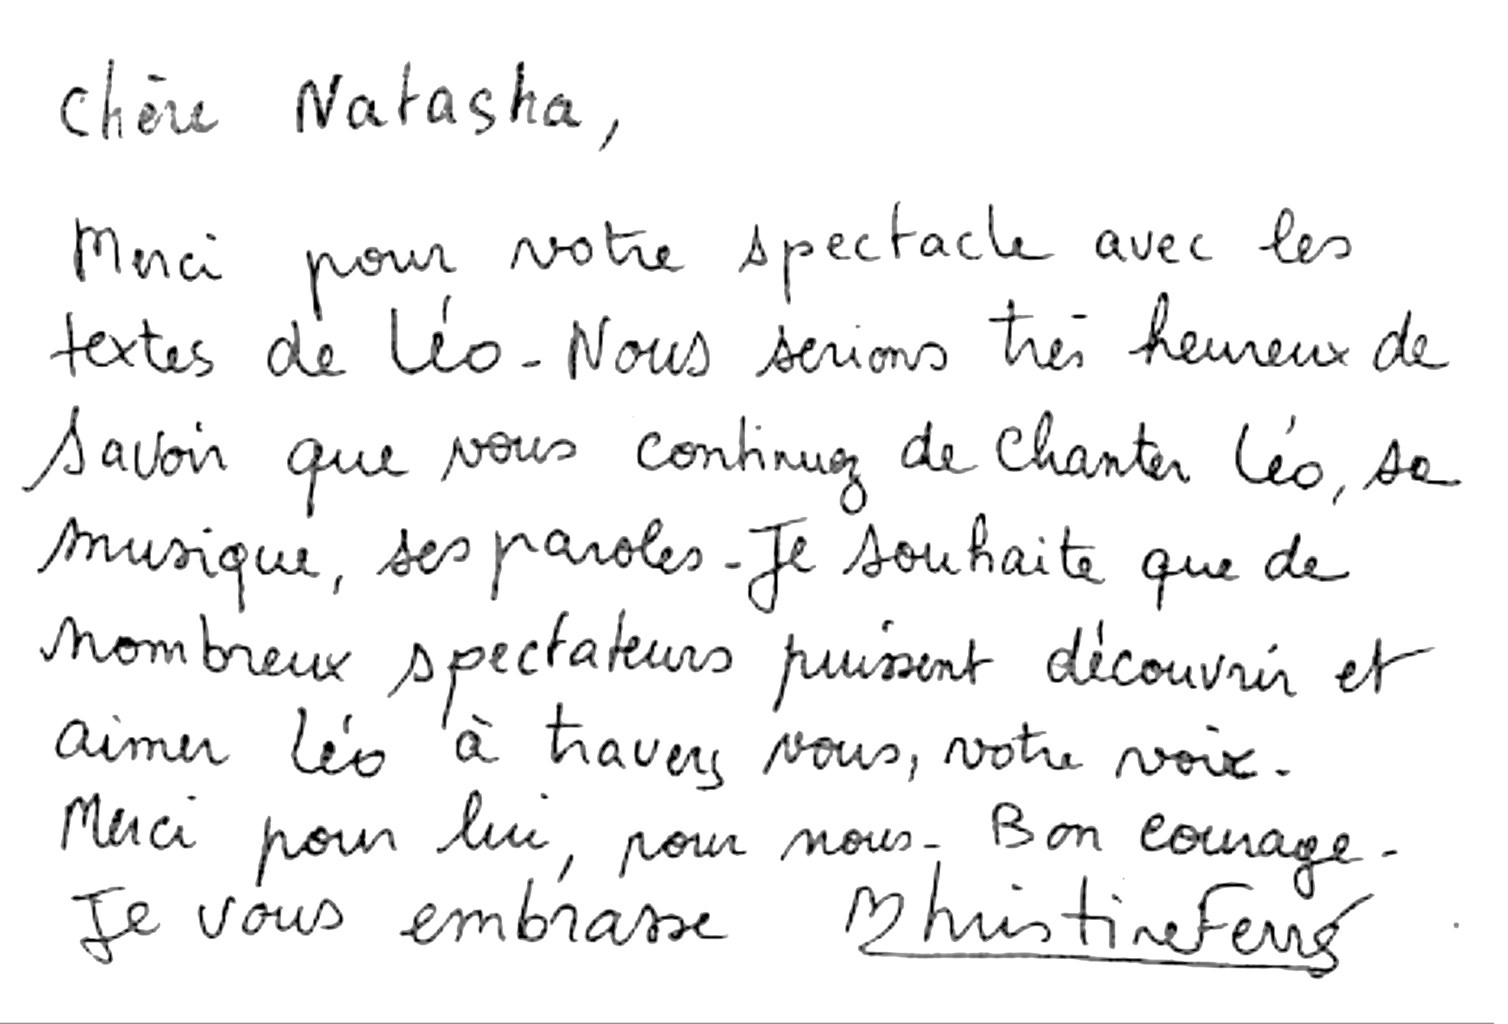 Chère Natasha,
Merci pour votre spectacle avec les
textes de Léo - Nous serions très heureux de
savoir que vous continuez de chanter Léo, sa
musique, ses paroles - Je souhaite que de
nombreux spectateurs puissent découvrir et
aimer Léo à travers vous, votre voix.
Merci pour lui, pour nous - Bon courage -
Je vous embrasse Christine Ferré